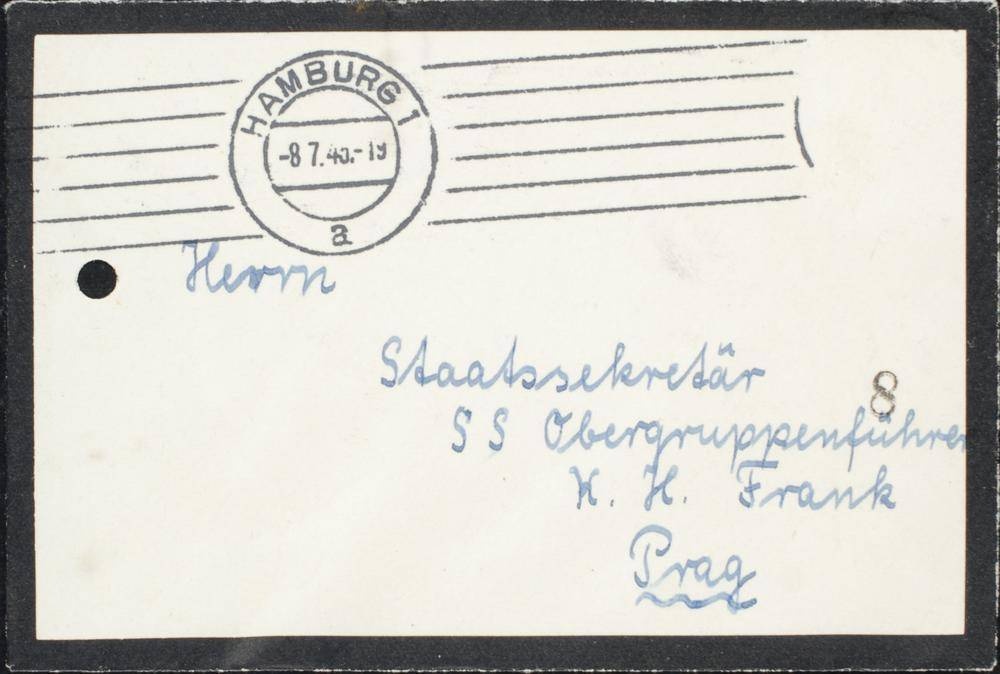 HAMBURG 1
-8 7.43.-19
a
Herrn
Staatssekretär
8
SS Obergruppenführer
K. H. Frank
Prag